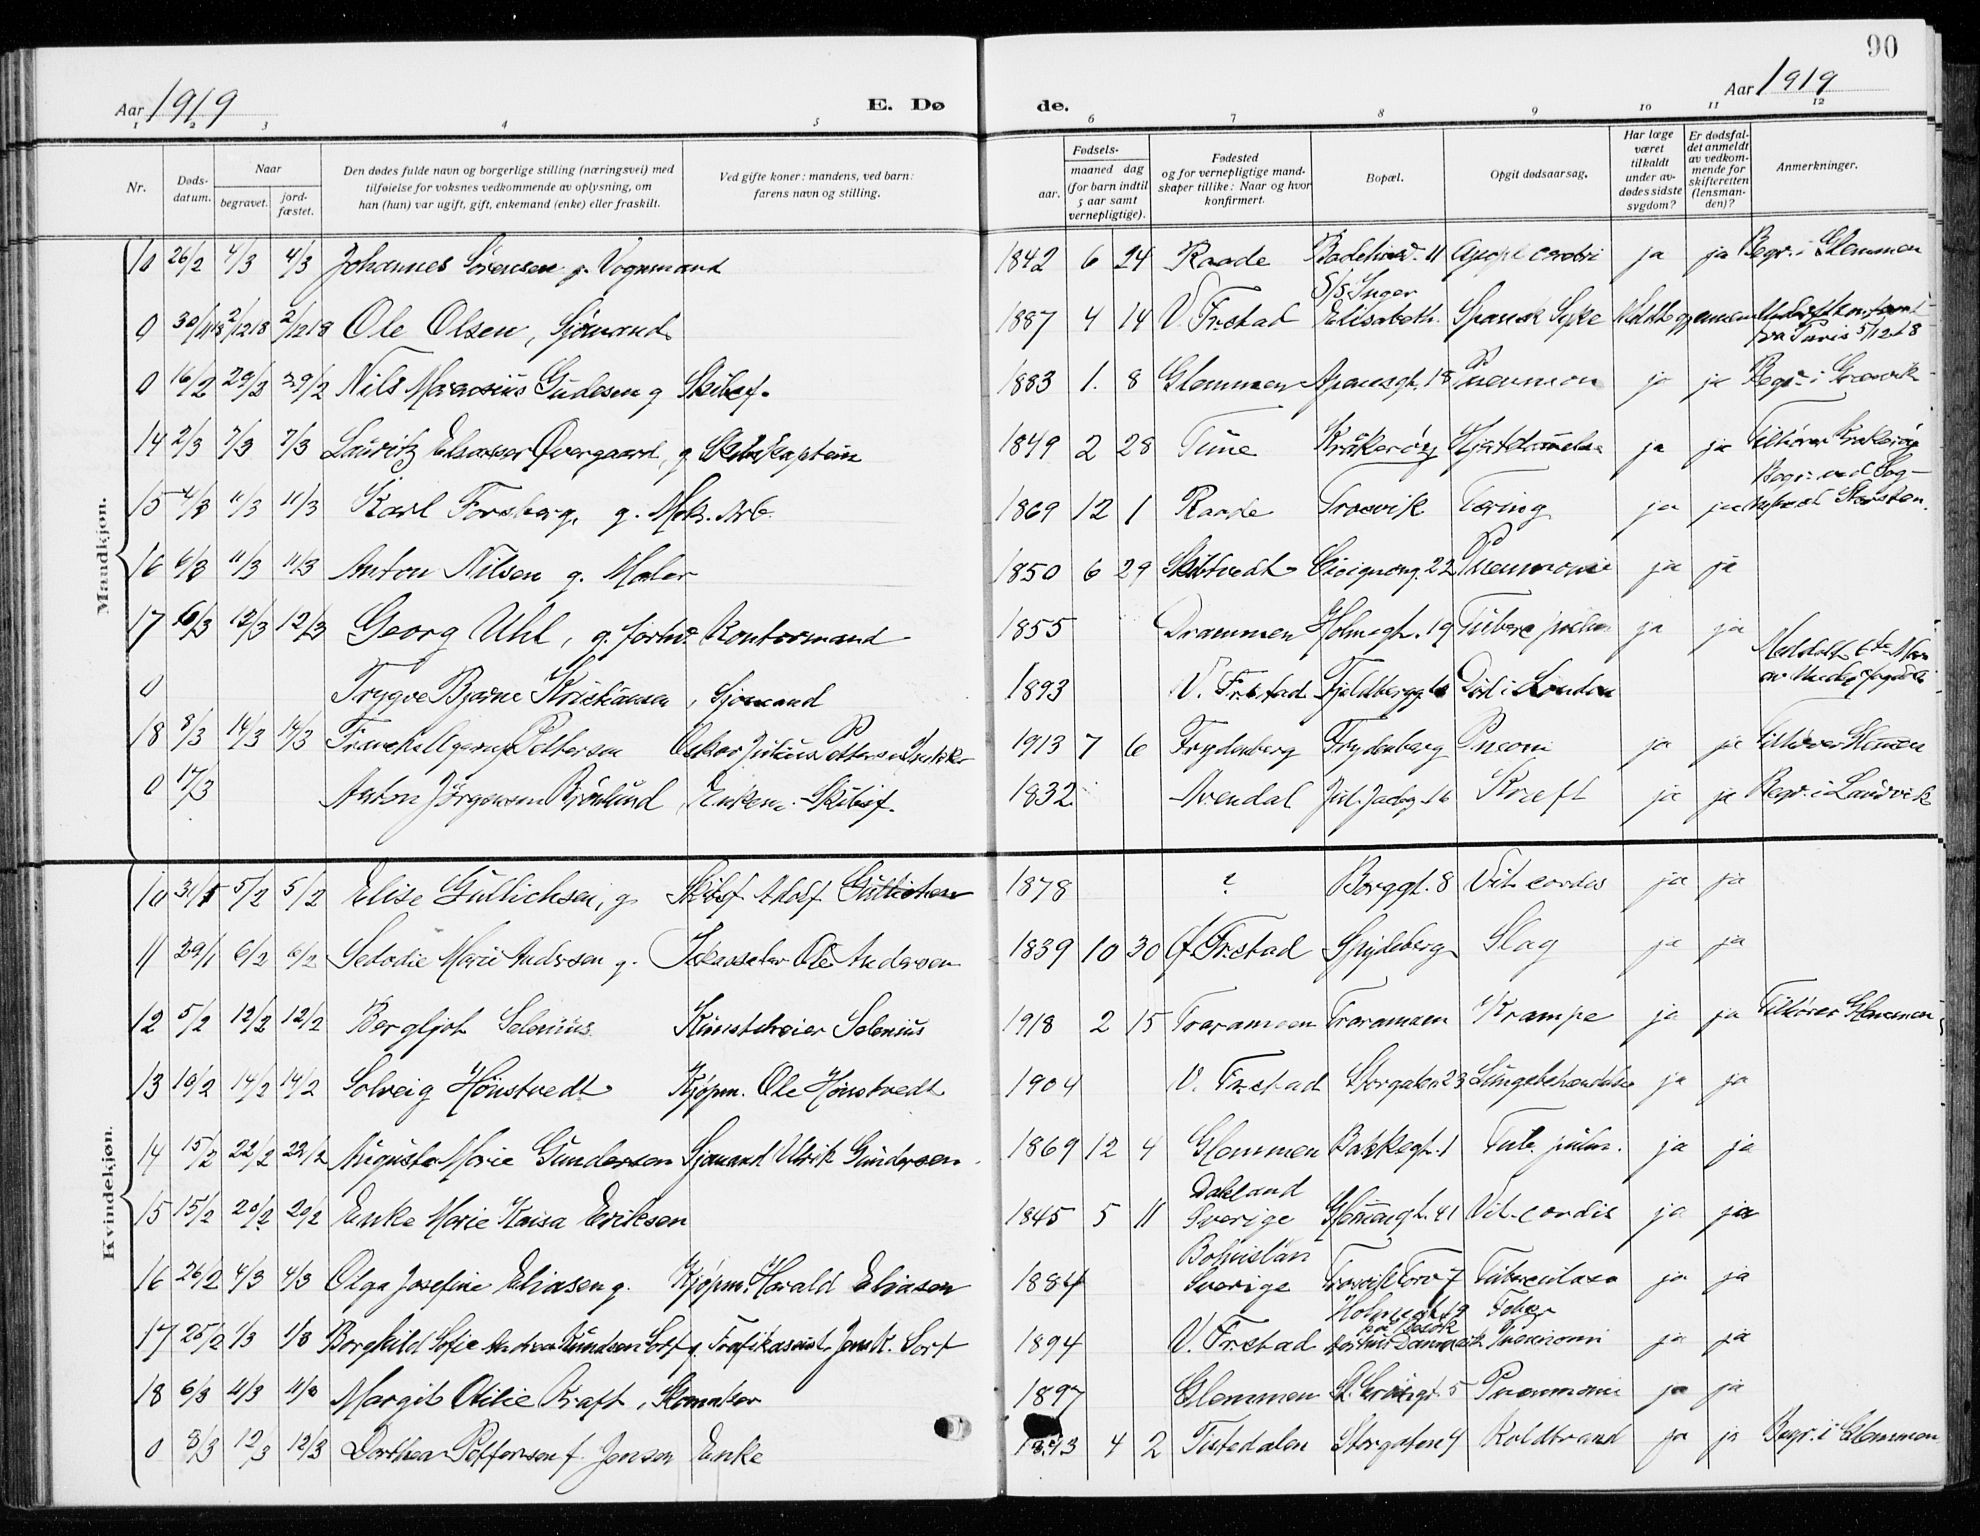 90
Aar 1919 E. Dø de. Aar 1919
1 2 3 4 5 6 7 8 9 10 11 12
Nr. Døds-datum. Naar begravet. jord-fæstet. Den dødes fulde navn og borgerlige stilling (næringsvei) med tilføielse for voksnes vedkommende av oplysning, om han (hun) var ugift, gift, enkemand (enke) eller fraskilt. Ved gifte koner: mandens, ved barn: farens navn og stilling. Fødsels- aar. maaned dag (for barn indtil 5 aar samt vernepligtige). Fødested og for vernepligtige mandskaper tillike: Naar og hvor konfirmert. Bopæl. Opgit dødsaarsag. Har læge været tilkaldt under avdødes sidste sygdom? Er dødsfaldet anmeldt av vedkommende for skifteretten (lensmanden)? Anmerkninger.
Mandkjøn.
10 26/2 4/3 4/3 Johannes Sørensen g. Vognmand 1842 6 24 Raade 11 ja ja Begr. i Glemmen
0 30/11 18 2/12 18 2/12 18 Ole Olsen, Sjømand 1887 4 14 V. Frstad S/S Inger Elisabeth. Spansk Syke fra Paris 5/12 18
0 16/2 29/2 29/2 Nils Marensius Gudesen g Skibsf. 1883 1. 8 Glemmen 18 Pneumoni ja ja Begr. i
14 2/3 7/3 7/3 Lauritz Eliassen Øvergaard, g Skibskaptein 1849 2 28 Tune Kråkerøy ja ja Tilhører Krakerøy
15 4/3 11/3 11/3 Karl Forsberg, g. Mek. Arb. 1869 12 1 Raade Trosvik Tæring ja ja Begr. ved
16 6/3 11/3 11/3 Anton Nilsen g. Maler 1850 6 29 Skibtvedt Cicignong. 22 Pneumoni ja ja
17 6/3 12/3 12/3 Georg Uhl, g. forhv. Kontormand 1855 Drammen Holmegt. 19 ja ja
0 Trygve Bjarne Kristiansen, Sjømand 1893 V. Frstad Død i London
18 8/3 14/3 14/3 Pettersen Oskar Julius Pettersen 1913 7 6 Frydenberg Frydenberg Pneoni ja ja Tilhører Glemmen
0 17/3 Anton Jørgensen Brønlund, Enkem. Skibsf. 1832 Arendal 16 Kreft ja ja Begr. i Landvik
Kvindekjøn.
10 31/1 5/2 5/2 Elise Gullichsen, g. Skibsf Adolf Gullichsen 1878 ? Borggt. 8 Vit. cordis ja ja
11 29/1 6/2 6/2 Marie Andersen g. Ole Andersen 1839 10 30 Ø Frstad Spydeberg Slag ja ja
12 5/2 12/2 12/2 Bergljot Selenius Selenius 1918 2 15 Traramoen Traramoen Krampe ja ja Tilhører Glemmen
13 10/2 14/2 14/2 Solveig Hønstvedt Kjøpm. Ole Hønstvedt 1904 V. Frstad Storgaten 23 ja ja
14 15/2 22/2 22/2 Augusta Marie Gundersen Sjømand Ulrik Gundersen. 1869 12 4 Glemmen Bakkegt. 1 Tub. pulm. ja ja
15 15/2 20/2 20/2 Enke Marie Kaisa Eriksen 1845 5 11 Dalsland Sverige 41 Vit. cordis ja ja
16 26/2 4/3 4/3 Olga Josefine Eliasen g. Kjøpm. Harald Eliasen 1884 Bohuslän Sverige Trosvik Torv 7 Tuberculose ja ja
17 25/2 1/3 1/3 Borghild Sofie Andrea Knudsen Sort g. Trafikassist. Jens K. Sort 1894 V. Frstad Holmegt. 19 på besøk Pneumoni ja ja
18 6/3 4/3 4/3 Margit Otilie Kraft, 1897 Glemmen 5 Pneumoni ja ja
0 8/3 12/3 12/3 Dorthea Pettersen f. Jensen Enke 1843 4 2 Tistedalen Storgaten 4 Koldbrand ja ja Begr. i Glemmen